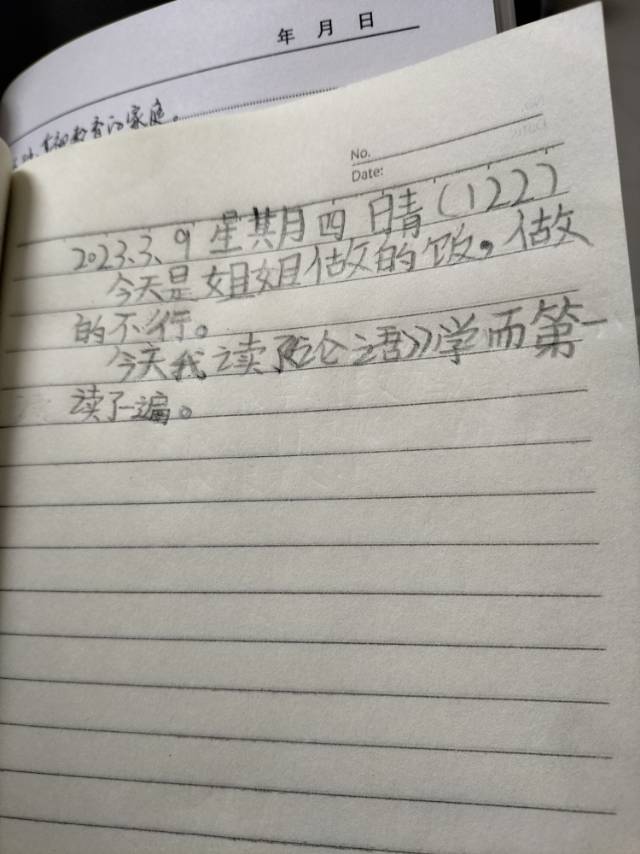 年 月 日
的家庭。
No.
Date:
2023.3.9 星期四 晴(122)
今天是姐姐做的饭。做
的不行。
今天我读了《论语》学而第一
读了一遍。